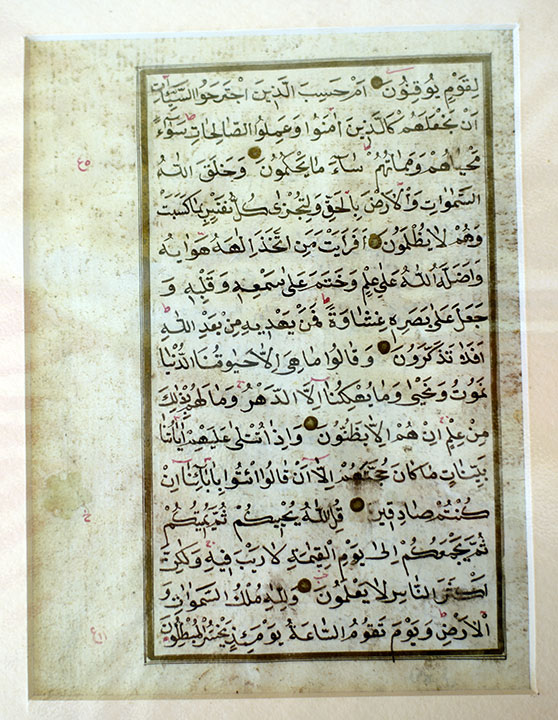 لِقَوْمٍ يُوقِنُونَ اَمْ حَسِبَ الَّذِينَ اجْتَرَحُوا السَّيِّئَاتِ
اَنْ نَجْعَلَهُمْ كَالَّذِينَ اٰمَنُوا وَعَمِلُوا الصَّالِحَاتِ سَوَٓاءً
مَحْيَاهُمْ وَمَمَاتُهُمْ سَٓاءَ مَا يَحْكُمُونَ وَخَلَقَ اللّٰهُ
السَّمٰوَاتِ وَالْاَرْضَ بِالْحَقِّ وَلِتُجْزٰى كُلُّ نَفْسٍ بِمَا كَسَبَتْ
وَهُمْ لَا يُظْلَمُونَ اَفَرَاَيْتَ مَنِ اتَّخَذَ اِلٰهَهُ هَوٰيهُ
وَاَضَلَّهُ اللّٰهُ عَلٰى عِلْمٍ وَخَتَمَ عَلٰى سَمْعِهِ وَقَلْبِهِ وَ
جَعَلَ عَلٰى بَصَرِهِ غِشَاوَةً فَمَنْ يَهْدِيهِ مِنْ بَعْدِ اللّٰهِ
اَفَلَا تَذَكَّرُونَ وَقَالُوا مَا هِيَ اِلَّا حَيَاتُنَا الدُّنْيَا
نَمُوتُ وَنَحْيٰى وَمَا يُهْلِكُنَٓا اِلَّا الدَّهْرُ وَمَا لَهُمْ بِذٰلِكَ
مِنْ عِلْمٍ اِنْ هُمْ اِلَّا يَظُنُّونَ وَاِذَا تُتْلٰى عَلَيْهِمْ اٰيَاتُنَا
بَيِّنَاتٍ مَا كَانَ حُجَّتَهُمْ اِلَّٓا اَنْ قَالُوا ائْتُوا بِاٰبَٓائِنَٓا اِنْ
كُنْتُمْ صَادِقِينَ قُلِ اللّٰهُ يُحْيِيكُمْ ثُمَّ يُمِيتُكُمْ
ثُمَّ يَجْمَعُكُمْ اِلٰى يَوْمِ الْقِيٰمَةِ لَا رَيْبَ فِيهِ وَلٰكِنَّ
اَكْثَرَ النَّاسِ لَا يَعْلَمُونَ وَلِلّٰهِ مُلْكُ السَّمٰوَاتِ وَ
الْاَرْضِ وَيَوْمَ تَقُومُ السَّاعَةُ يَوْمَئِذٍ يَخْسَرُ الْمُبْطِلُونَ